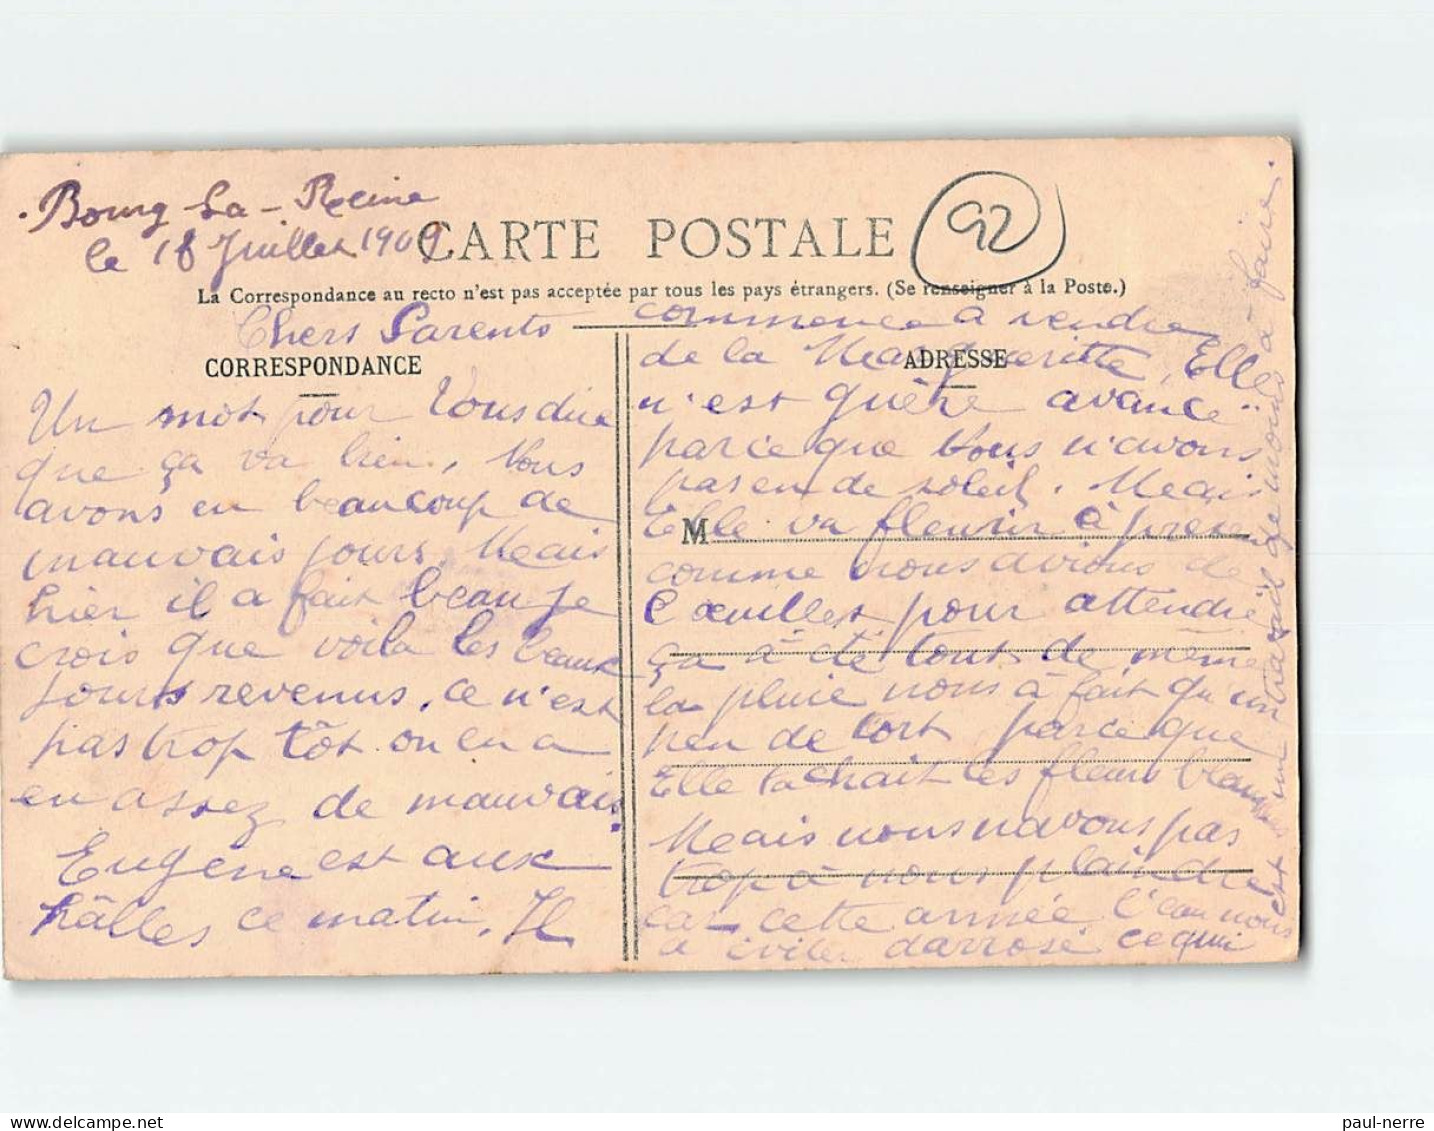 Bourg-La-Reine
le 18 Juillet 1909
CARTE POSTALE
92
La Correspondance au recto n'est pas acceptée par tous les pays étrangers. (Se renseigner à la Poste.)
CORRESPONDANCE
ADRESSE
M
Chers Parents
Un mot pour Vous dire
que ça va bien, Nous
avons eu beaucoup de
mauvais jours. Mais
hier il a fait beau je
crois que voila les beaux
jours revenus, ce n'est
pas trop tôt on en a
eu assez de mauvais.
Eugène est aux
hâlles ce matin. Il
commence a vendre
de la Margueritte, Elle
n'est guère avancé
parce que Nous n'avons
pas eu de soleil. Mais
Elle va fleurir à présent
comme nous avions de
l'œuillet pour attendre
ça à été tout de même
la pluie nous à fait qu'un
peu de tort parce que
Elle tachait les fleurs blanches
Mais nous n'avons pas
trop à nous plaindre
car cette année l'eau nous
a éviter d'arrosé ce qui
est un travail de moins à faire.
paul-nerre